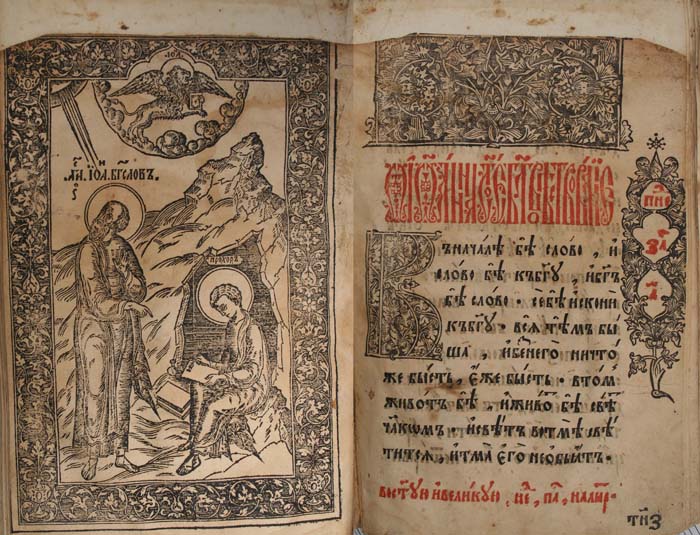 і҆ѡа҃. бг҃словъ.
прохоръ
Въначалѣ бѣ слово, и҆
слово бѣ къбг҃у, и҆бг҃ъ
бѣ слово. се бѣ и҆скони
къбг҃у. вся тѣмъ бы
ша, и҆безнего ничто
же бысть, є҆же бысть. втомъ
живо́тъ бѣ, и҆живоⷮ бѣ свѣⷮ
чл҃комъ. и҆свѣтъ вотмѣ свѣ
титсѧ, и҆тма є҆го необьѧтъ.
востую и҆великую, неⷣ, па,
тн҃з